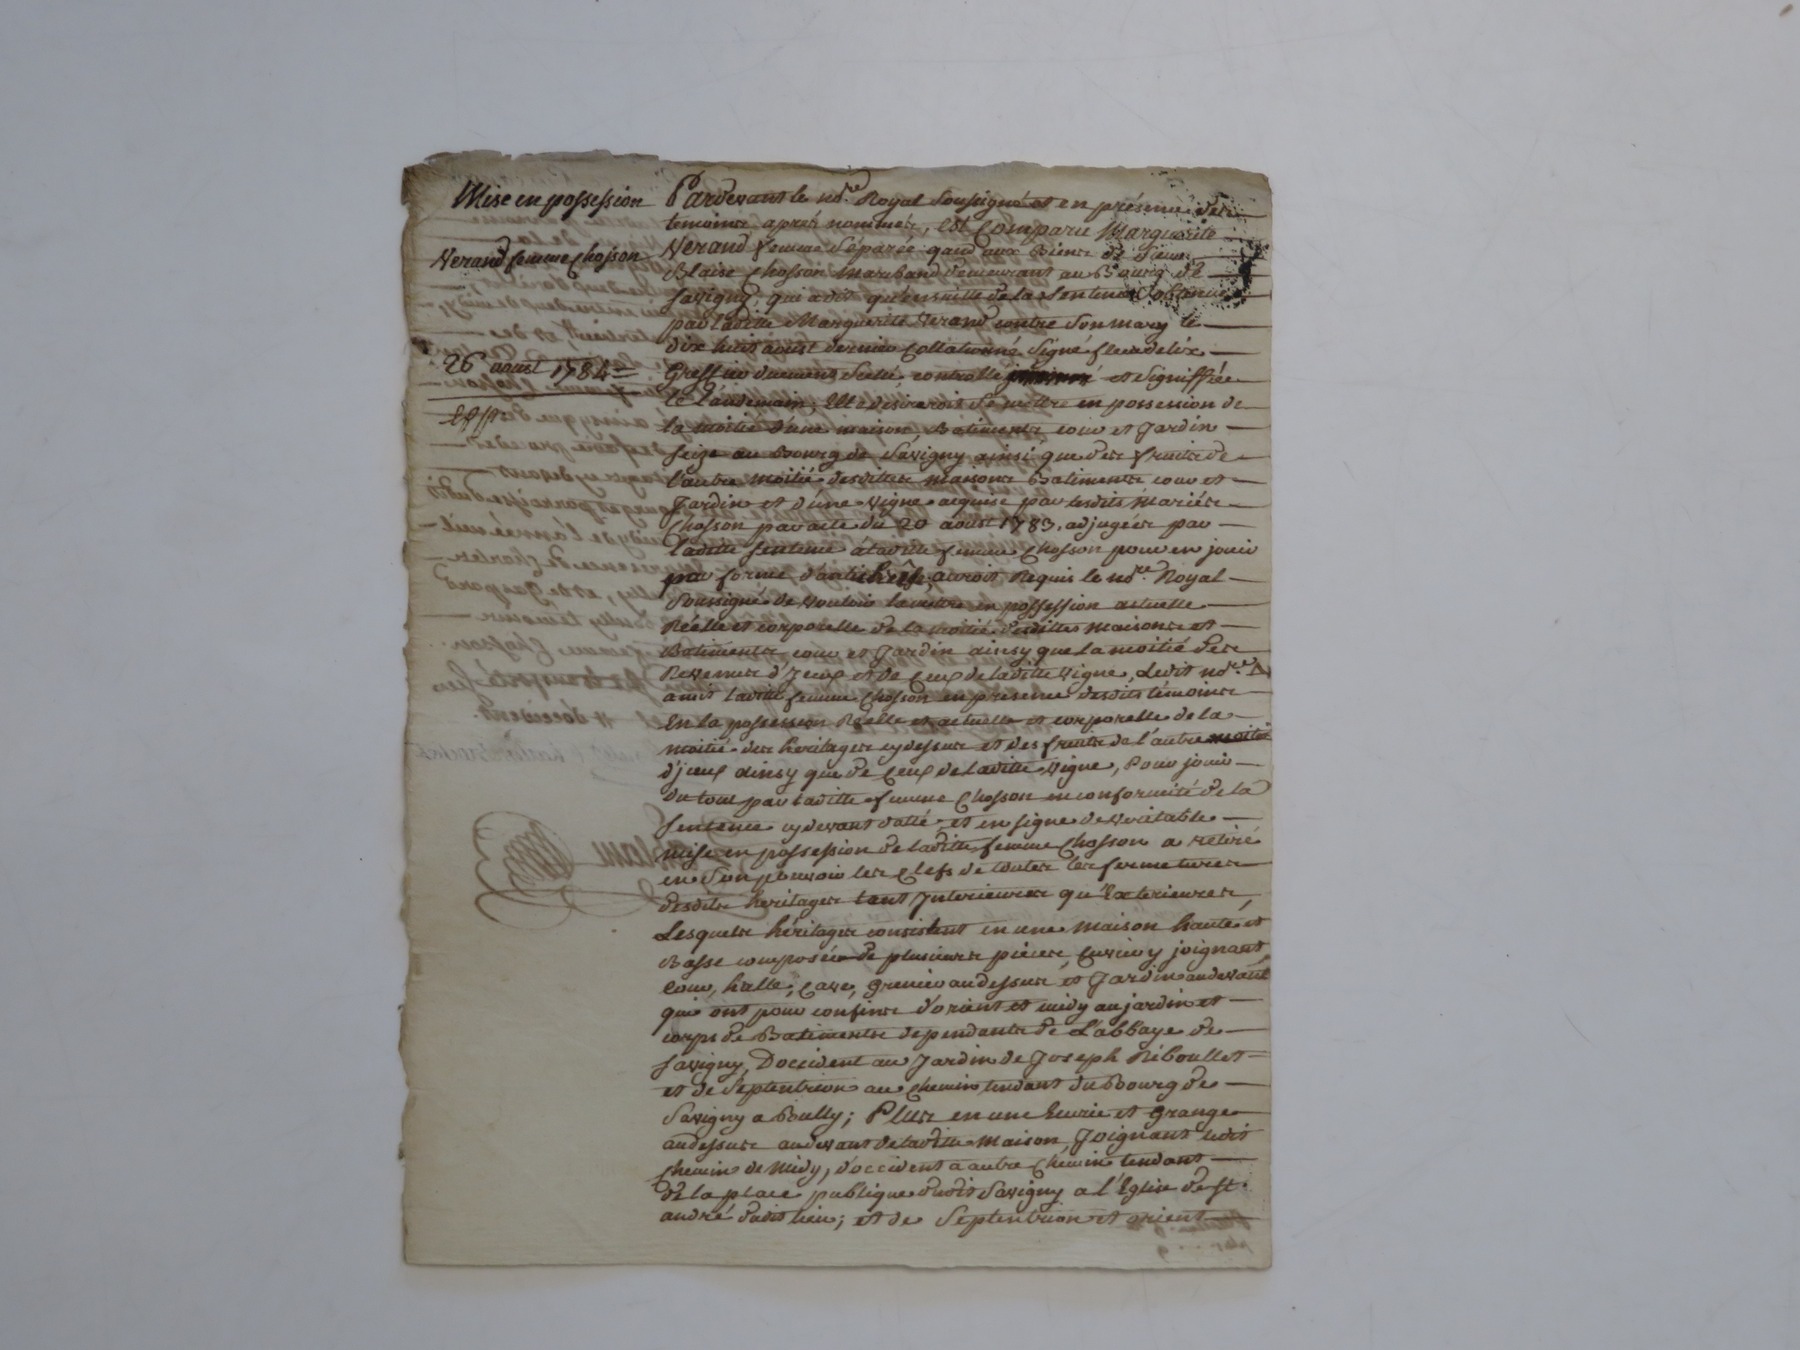 Mise en possession
Verand femme Chosson
26 aoust 1784
Pardevant le no.re Royal soussigné et en présence des
temoins apres nommés, est Comparue Marguerite
Verand femme séparée quand aux Biens de sieur
Blaise Chosson Marchand demeurant au Bourg de
Savigny, qui a dit qu'ensuitte de la sentence obtenue
par laditte Marguerite Verand contre son mary le
dix huit aoust dernier Collationné signé fleurdelix
Greffier duement scellé, controllé et signiffiée
le landemain, Elle desireroit se mettre en possession de
la moitié d'une maison, Batiments cour et Jardin
seize au Bourg de Savigny ainsi que des fruits de
l'autre moitié desdittes maisons Batiments cour et
Jardin et d'une vigne acquise par lesdits Mariés
Chosson par acte du 20 aoust 1783, adjugés par
laditte sentence a laditte femme Chosson pour en jouir
par forme d'antichrese, auroit Requis le no.re Royal
soussigné de vouloir la mettre en possession actuelle
Réelle et corporelle de la moitié desdittes maisons et
Batiments cour et Jardin ainsy que la moitié des
Revenus d'Iceux et de ceux de laditte vigne, Ledit no.re
a mis laditte femme Chosson en presence desdits témoins
En la possession Réelle et actuelle et corporelle de la
moitié des héritages cy dessus et des fruits de l'autre moitié
d'jceux ainsy que de ceux de laditte vigne, Pour jouir
du tout par laditte femme Chosson en conformité de la
sentence cy devant datté, et en signe de véritable
mise en possession de laditte femme Chosson a retiré
en son pouvoir les Clefs de toutes les fermetures
desdits heritages tant Jnterieures qu'Exterieures,
Lesquels héritages consistent en une maison haute et
Basse composée de plusieurs pièces, Cuvier y joignant,
Cour, halle, Cave, grenier au dessus et Jardin au devant
qui ont pour confins d'orient et midy au jardin et
corps de Batiments dependants de L'abbaye de
Savigny, D'occident au Jardin de Joseph Réboullet
et de septentrion au chemin tendant du Bourg de
Savigny a Bully; Plus en une Ecurie et Grange
au dessus au devant de laditte Maison, Joignant ledit
Chemin de Midy, d'occident a autre Chemin tendant
de la place publique dudit Savigny a l'Eglise de St.
andré dudit lieu; et de septentrion et orient